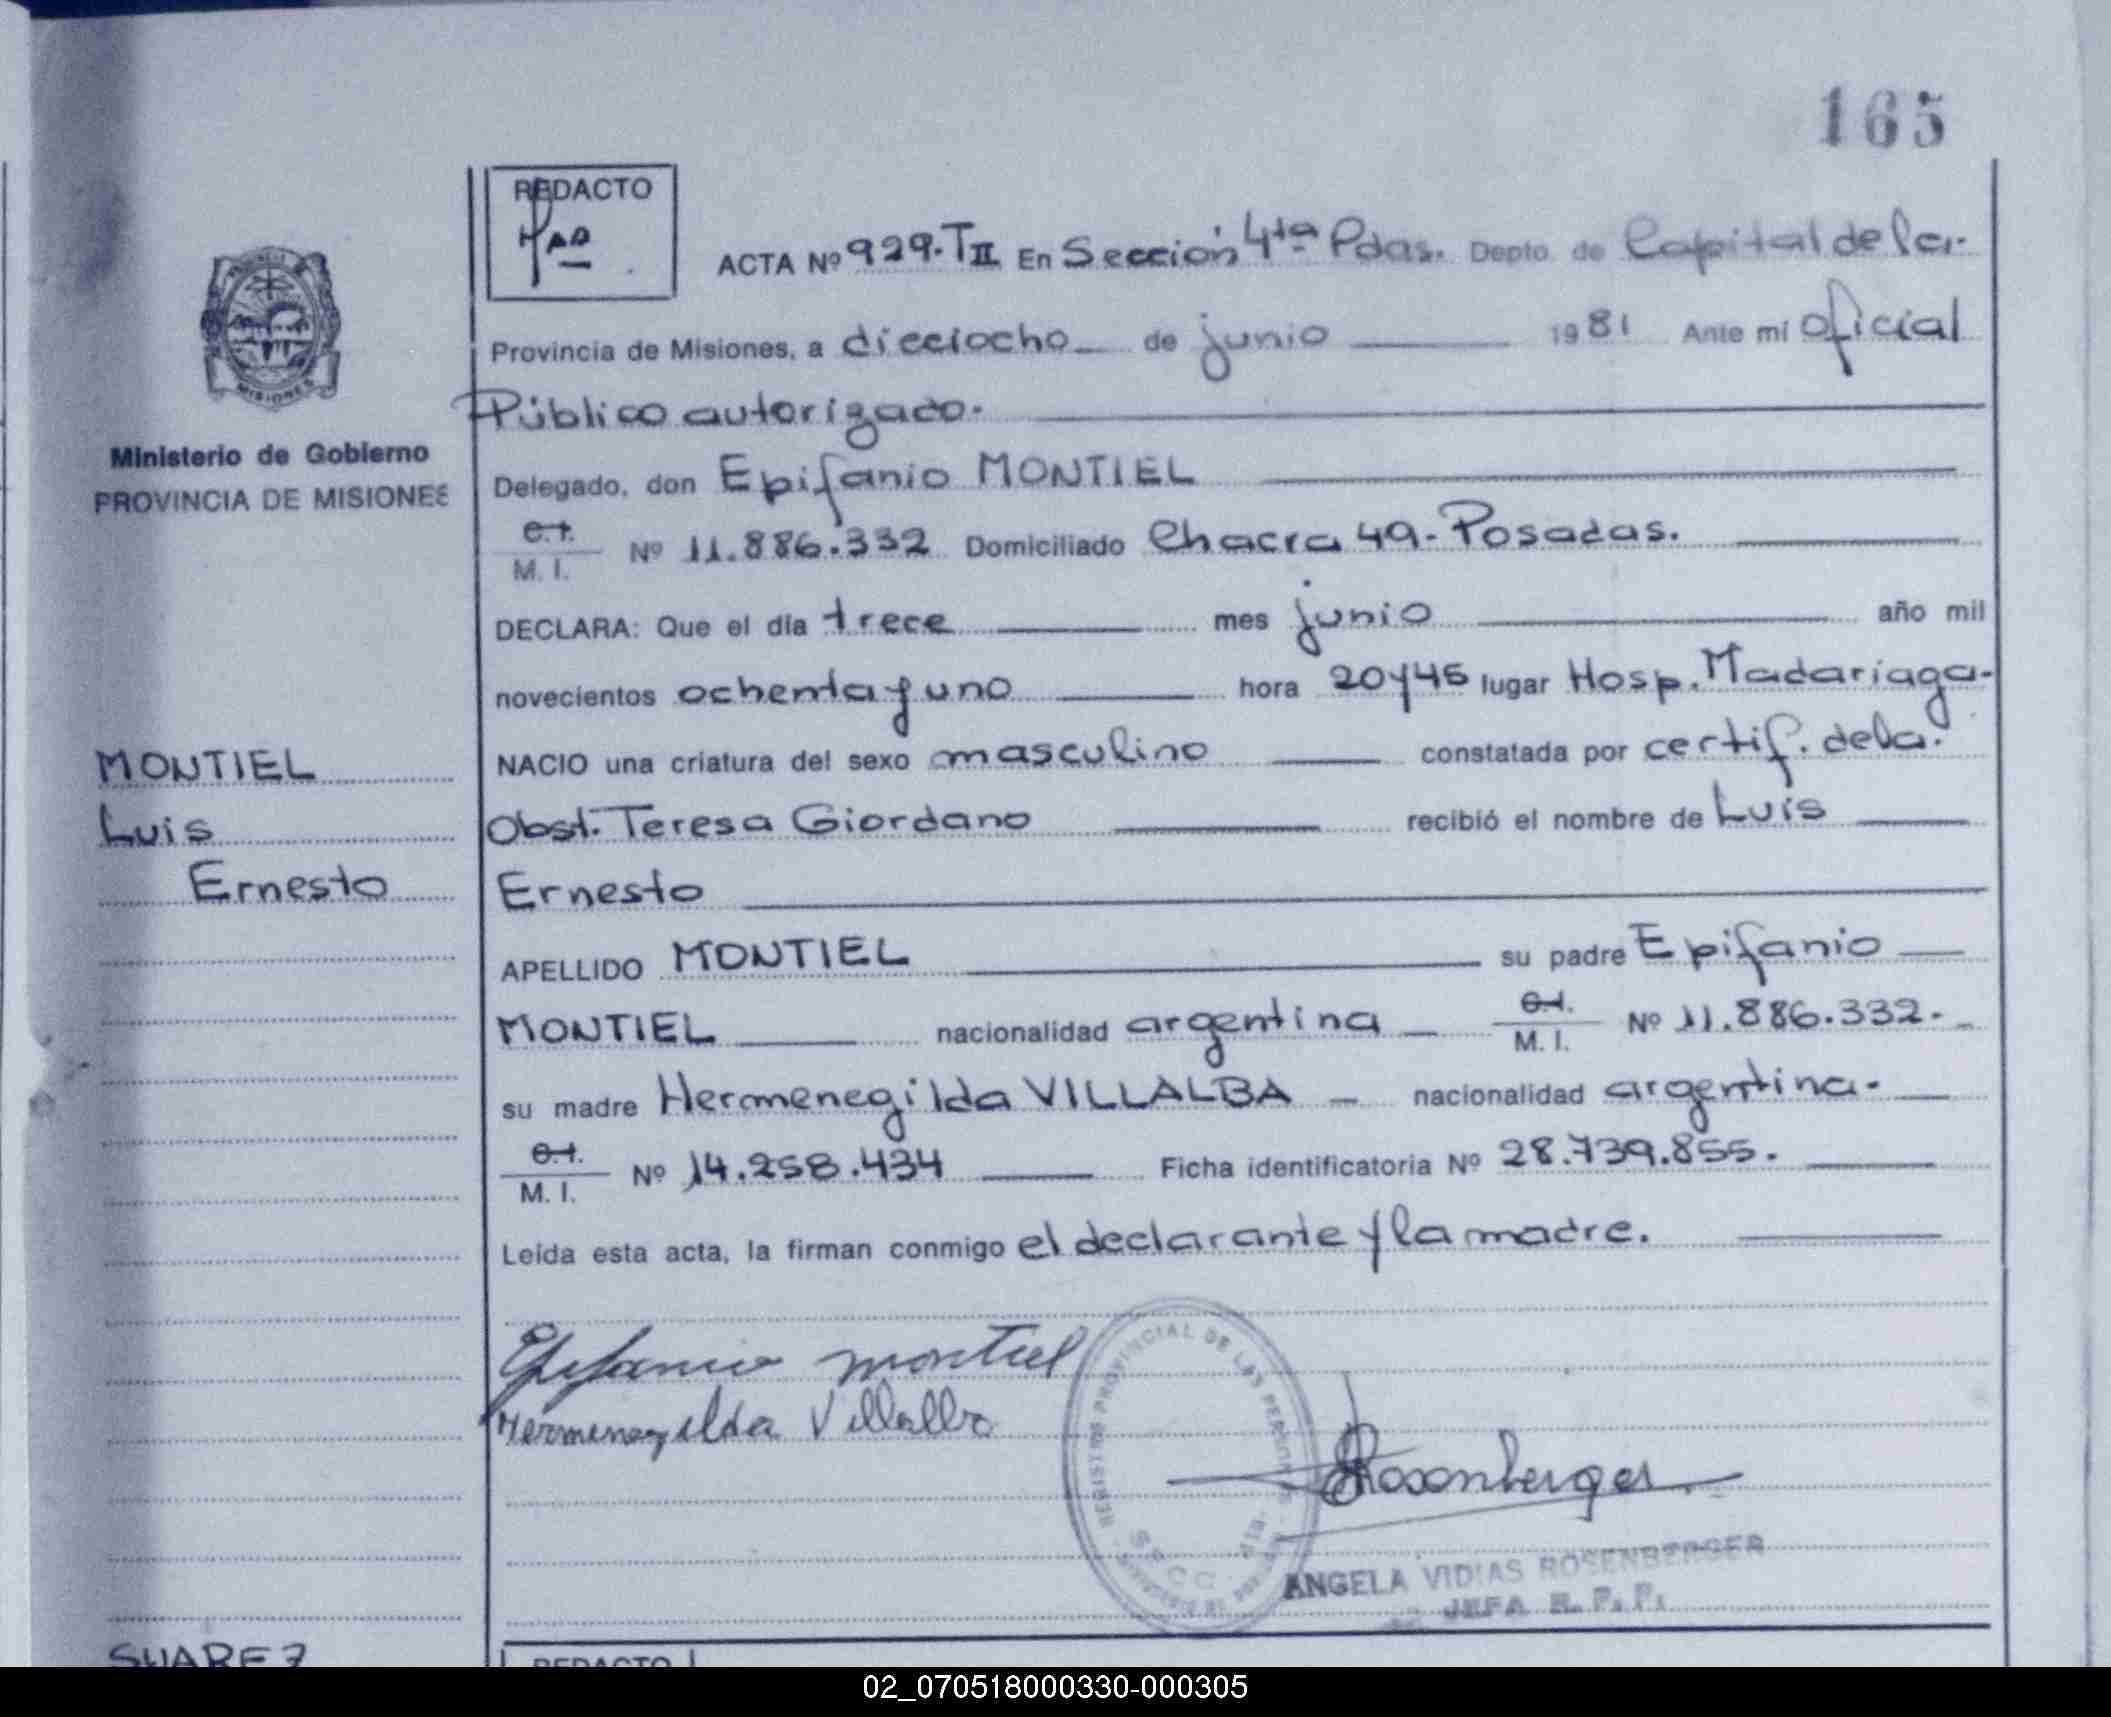 165
REDACTO
ACTA Nº 929.TII En Sección 4ta Pdas. Depto. de Capital de la.
Provincia de Misiones, a dieciocho de junio 1981 Ante mí oficial
Público autorizado.
Ministerio de Gobierno
PROVINCIA DE MISIONES
MISIONES
Delegado, don Epifanio MONTIEL
C.I.
M. I. Nº 11.886.332 Domiciliado Chacra 49.- Posadas.
DECLARA: Que el día trece mes junio año mil
novecientos ochenta y uno hora 20y45 lugar Hosp. Madariaga-
MONTIEL
Luis
Ernesto
NACIO una criatura del sexo masculino constatada por certif. dela.
Obst. Teresa Giordano recibió el nombre de Luis
Ernesto
APELLIDO MONTIEL su padre Epifanio
MONTIEL nacionalidad argentina C.I. M. I. Nº 11.886.332.
su madre Hermenegilda VILLALBA nacionalidad argentina.
C.I.
M. I. Nº 14.258.434 Ficha identificatoria Nº 28.739.855.
Leída esta acta, la firman conmigo el declarante y la madre.
Epifanio montiel
Hermenegilda Villalba
REGISTRO PROVINCIAL DE LAS PERSONAS
Rosenberger
ANGELA VIDIAS ROSENBERGER
JEFA R. P. P.
SUAREZ
REDACTO
02_070518000330-000305